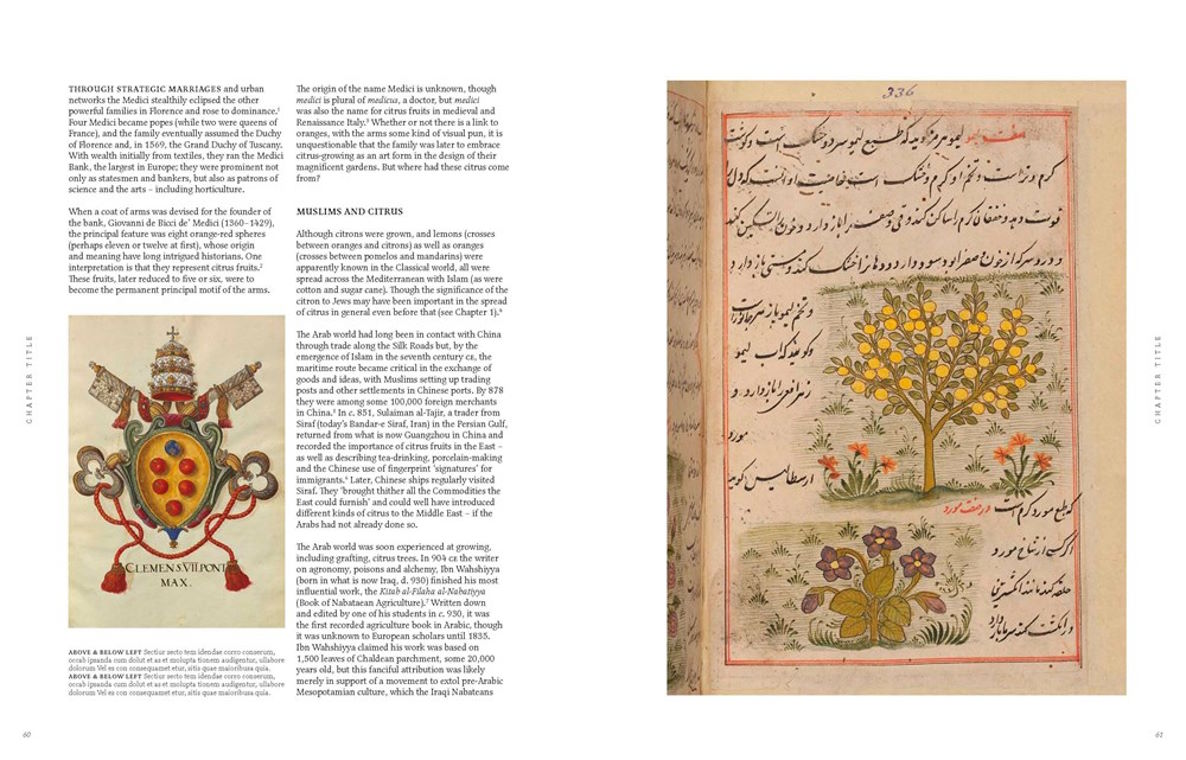 THROUGH STRATEGIC MARRIAGES and urban
networks the Medici stealthily eclipsed the other
powerful families in Florence and rose to dominance.¹
Four Medici became popes (while two were queens of
France), and the family eventually assumed the Duchy
of Florence and, in 1569, the Grand Duchy of Tuscany.
With wealth initially from textiles, they ran the Medici
Bank, the largest in Europe; they were prominent not
only as statesmen and bankers, but also as patrons of
science and the arts – including horticulture.
When a coat of arms was devised for the founder of
the bank, Giovanni de Bicci de' Medici (1360–1429),
the principal feature was eight orange-red spheres
(perhaps eleven or twelve at first), whose origin
and meaning have long intrigued historians. One
interpretation is that they represent citrus fruits.²
These fruits, later reduced to five or six, were to
become the permanent principal motif of the arms.
CLEMENS·VII·PONT
MAX.
ABOVE & BELOW LEFT Sectiur secto tem idendae corro conserum,
occab ipsanda cum dolut et as et molupta tionem audigentur, ullabore
dolorum Vel es con consequamet etur, sitis quae maioribusa quia.
ABOVE & BELOW LEFT Sectiur secto tem idendae corro conserum,
occab ipsanda cum dolut et as et molupta tionem audigentur, ullabore
dolorum Vel es con consequamet etur, sitis quae maioribusa quia.
The origin of the name Medici is unknown, though
medici is plural of medicus, a doctor, but medici
was also the name for citrus fruits in medieval and
Renaissance Italy.³ Whether or not there is a link to
oranges, with the arms some kind of visual pun, it is
unquestionable that the family was later to embrace
citrus-growing as an art form in the design of their
magnificent gardens. But where had these citrus come
from?
MUSLIMS AND CITRUS
Although citrons were grown, and lemons (crosses
between oranges and citrons) as well as oranges
(crosses between pomelos and mandarins) were
apparently known in the Classical world, all were
spread across the Mediterranean with Islam (as were
cotton and sugar cane). Though the significance of the
citron to Jews may have been important in the spread
of citrus in general even before that (see Chapter 1).⁴
The Arab world had long been in contact with China
through trade along the Silk Roads but, by the
emergence of Islam in the seventh century CE, the
maritime route became critical in the exchange of
goods and ideas, with Muslims setting up trading
posts and other settlements in Chinese ports. By 878
they were among some 100,000 foreign merchants
in China.⁵ In c. 851, Sulaiman al-Tajir, a trader from
Siraf (today's Bandar-e Siraf, Iran) in the Persian Gulf,
returned from what is now Guangzhou in China and
recorded the importance of citrus fruits in the East –
as well as describing tea-drinking, porcelain-making
and the Chinese use of fingerprint 'signatures' for
immigrants.⁶ Later, Chinese ships regularly visited
Siraf. They 'brought thither all the Commodities the
East could furnish' and could well have introduced
different kinds of citrus to the Middle East – if the
Arabs had not already done so.
The Arab world was soon experienced at growing,
including grafting, citrus trees. In 904 CE the writer
on agronomy, poisons and alchemy, Ibn Wahshiyya
(born in what is now Iraq, d. 930) finished his most
influential work, the Kitab al-Filaha al-Nabatiyya
(Book of Nabataean Agriculture).⁷ Written down
and edited by one of his students in c. 930, it was
the first recorded agriculture book in Arabic, though
it was unknown to European scholars until 1835.
Ibn Wahshiyya claimed his work was based on
1,500 leaves of Chaldean parchment, some 20,000
years old, but this fanciful attribution was likely
merely in support of a movement to extol pre-Arabic
Mesopotamian culture, which the Iraqi Nabateans
CHAPTER TITLE
60
336
که طبع لیمو سرد و خشک است
گرم و تر است و تخم او گرم و خشک است خاصیت او انست که دل
قوت دهد و خفقان گرم را ساکن کند
و درد سر که از خون صفرا
و تخم لیمو
باز دارد و
مورد
که طبع مورد گرم است در صفت مورد
اگر کسی از شاخ مورد
حلقه کند مانند انگشتری
CHAPTER TITLE
61